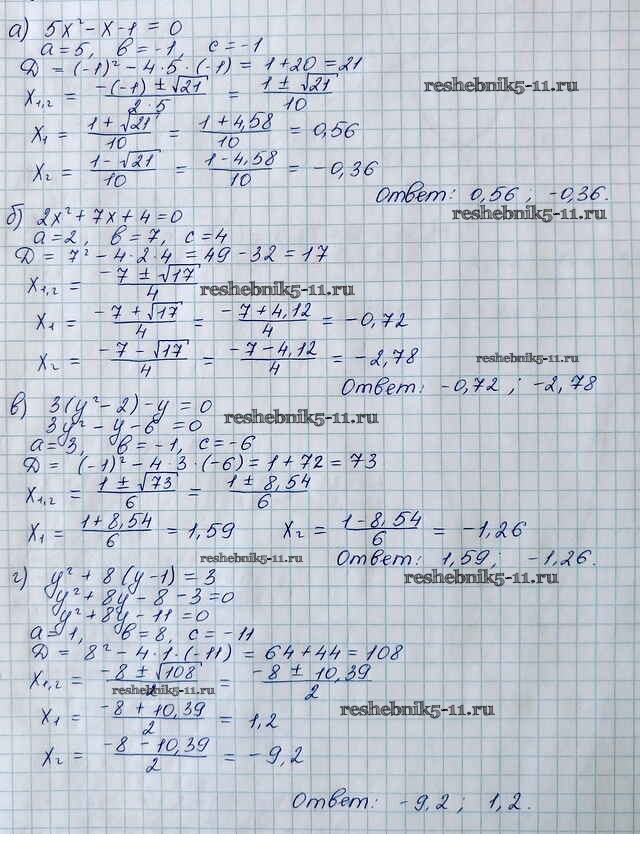 а) 5x² - x - 1 = 0
a = 5, в = -1, c = -1
D = (-1)² - 4·5·(-1) = 1 + 20 = 21
x₁,₂ = (-(-1) ± √21)/(2·5) = (1 ± √21)/10
reshebnik5-11.ru
x₁ = (1 + √21)/10 = (1 + 4,58)/10 = 0,56
x₂ = (1 - √21)/10 = (1 - 4,58)/10 = -0,36
Ответ: 0,56 ; -0,36.
reshebnik5-11.ru
б) 2x² + 7x + 4 = 0
a = 2, в = 7, c = 4
D = 7² - 4·2·4 = 49 - 32 = 17
x₁,₂ = (-7 ± √17)/4
reshebnik5-11.ru
x₁ = (-7 + √17)/4 = (-7 + 4,12)/4 = -0,72
x₂ = (-7 - √17)/4 = (-7 - 4,12)/4 = -2,78
reshebnik5-11.ru
Ответ: -0,72 ; -2,78
в) 3(y² - 2) - y = 0
reshebnik5-11.ru
3y² - y - 6 = 0
a = 3, в = -1, c = -6
D = (-1)² - 4·3·(-6) = 1 + 72 = 73
x₁,₂ = (1 ± √73)/6 = (1 ± 8,54)/6
reshebnik5-11.ru
x₁ = (1 + 8,54)/6 = 1,59 x₂ = (1 - 8,54)/6 = -1,26
reshebnik5-11.ru
Ответ: 1,59; -1,26.
г) y² + 8(y - 1) = 3
reshebnik5-11.ru
y² + 8y - 8 - 3 = 0
y² + 8y - 11 = 0
a = 1, в = 8, c = -11
D = 8² - 4·1·(-11) = 64 + 44 = 108
x₁,₂ = (-8 ± √108)/2 = (-8 ± 10,39)/2
reshebnik5-11.ru
x₁ = (-8 + 10,39)/2 = 1,2
reshebnik5-11.ru
x₂ = (-8 - 10,39)/2 = -9,2
Ответ: -9,2 ; 1,2.